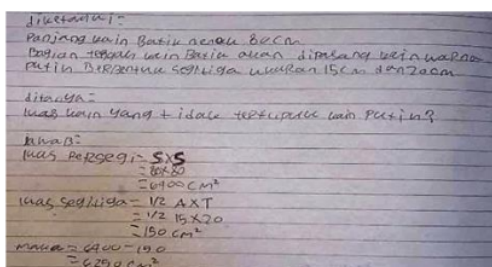 diketahui:
Panjang kain Batik nenek 80cm
Bagian tengah kain Batik akan dipasang kain warna
putih Berbentuk segitiga ukuran 15cm dan 20cm
ditanya:
luas kain yang tidak tertutup kain putih?
Jawab:
luas persegi = S×S
= 80×80
= 6400 cm²
luas segitiga = 1/2 A×T
= 1/2 15×20
= 150 cm²
maka = 6400 - 150
= 6250 cm²